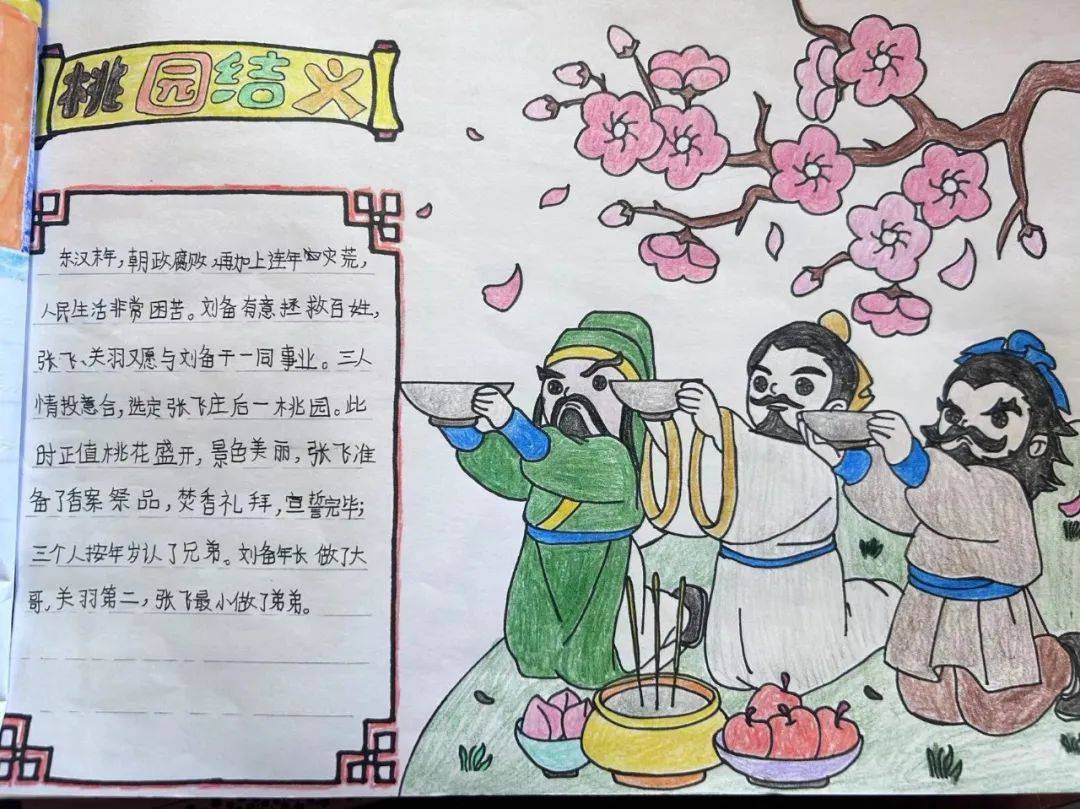 桃园结义
东汉末年，朝政腐败，再加上连年灾荒，
人民生活非常困苦。刘备有意拯救百姓，
张飞、关羽又愿与刘备干一同事业。三人
情投意合，选定张飞庄后一桃园。此
时正值桃花盛开，景色美丽，张飞准
备了香案祭品，焚香礼拜，宣誓完毕；
三个人按年岁认了兄弟。刘备年长做了大
哥，关羽第二，张飞最小做了弟弟。